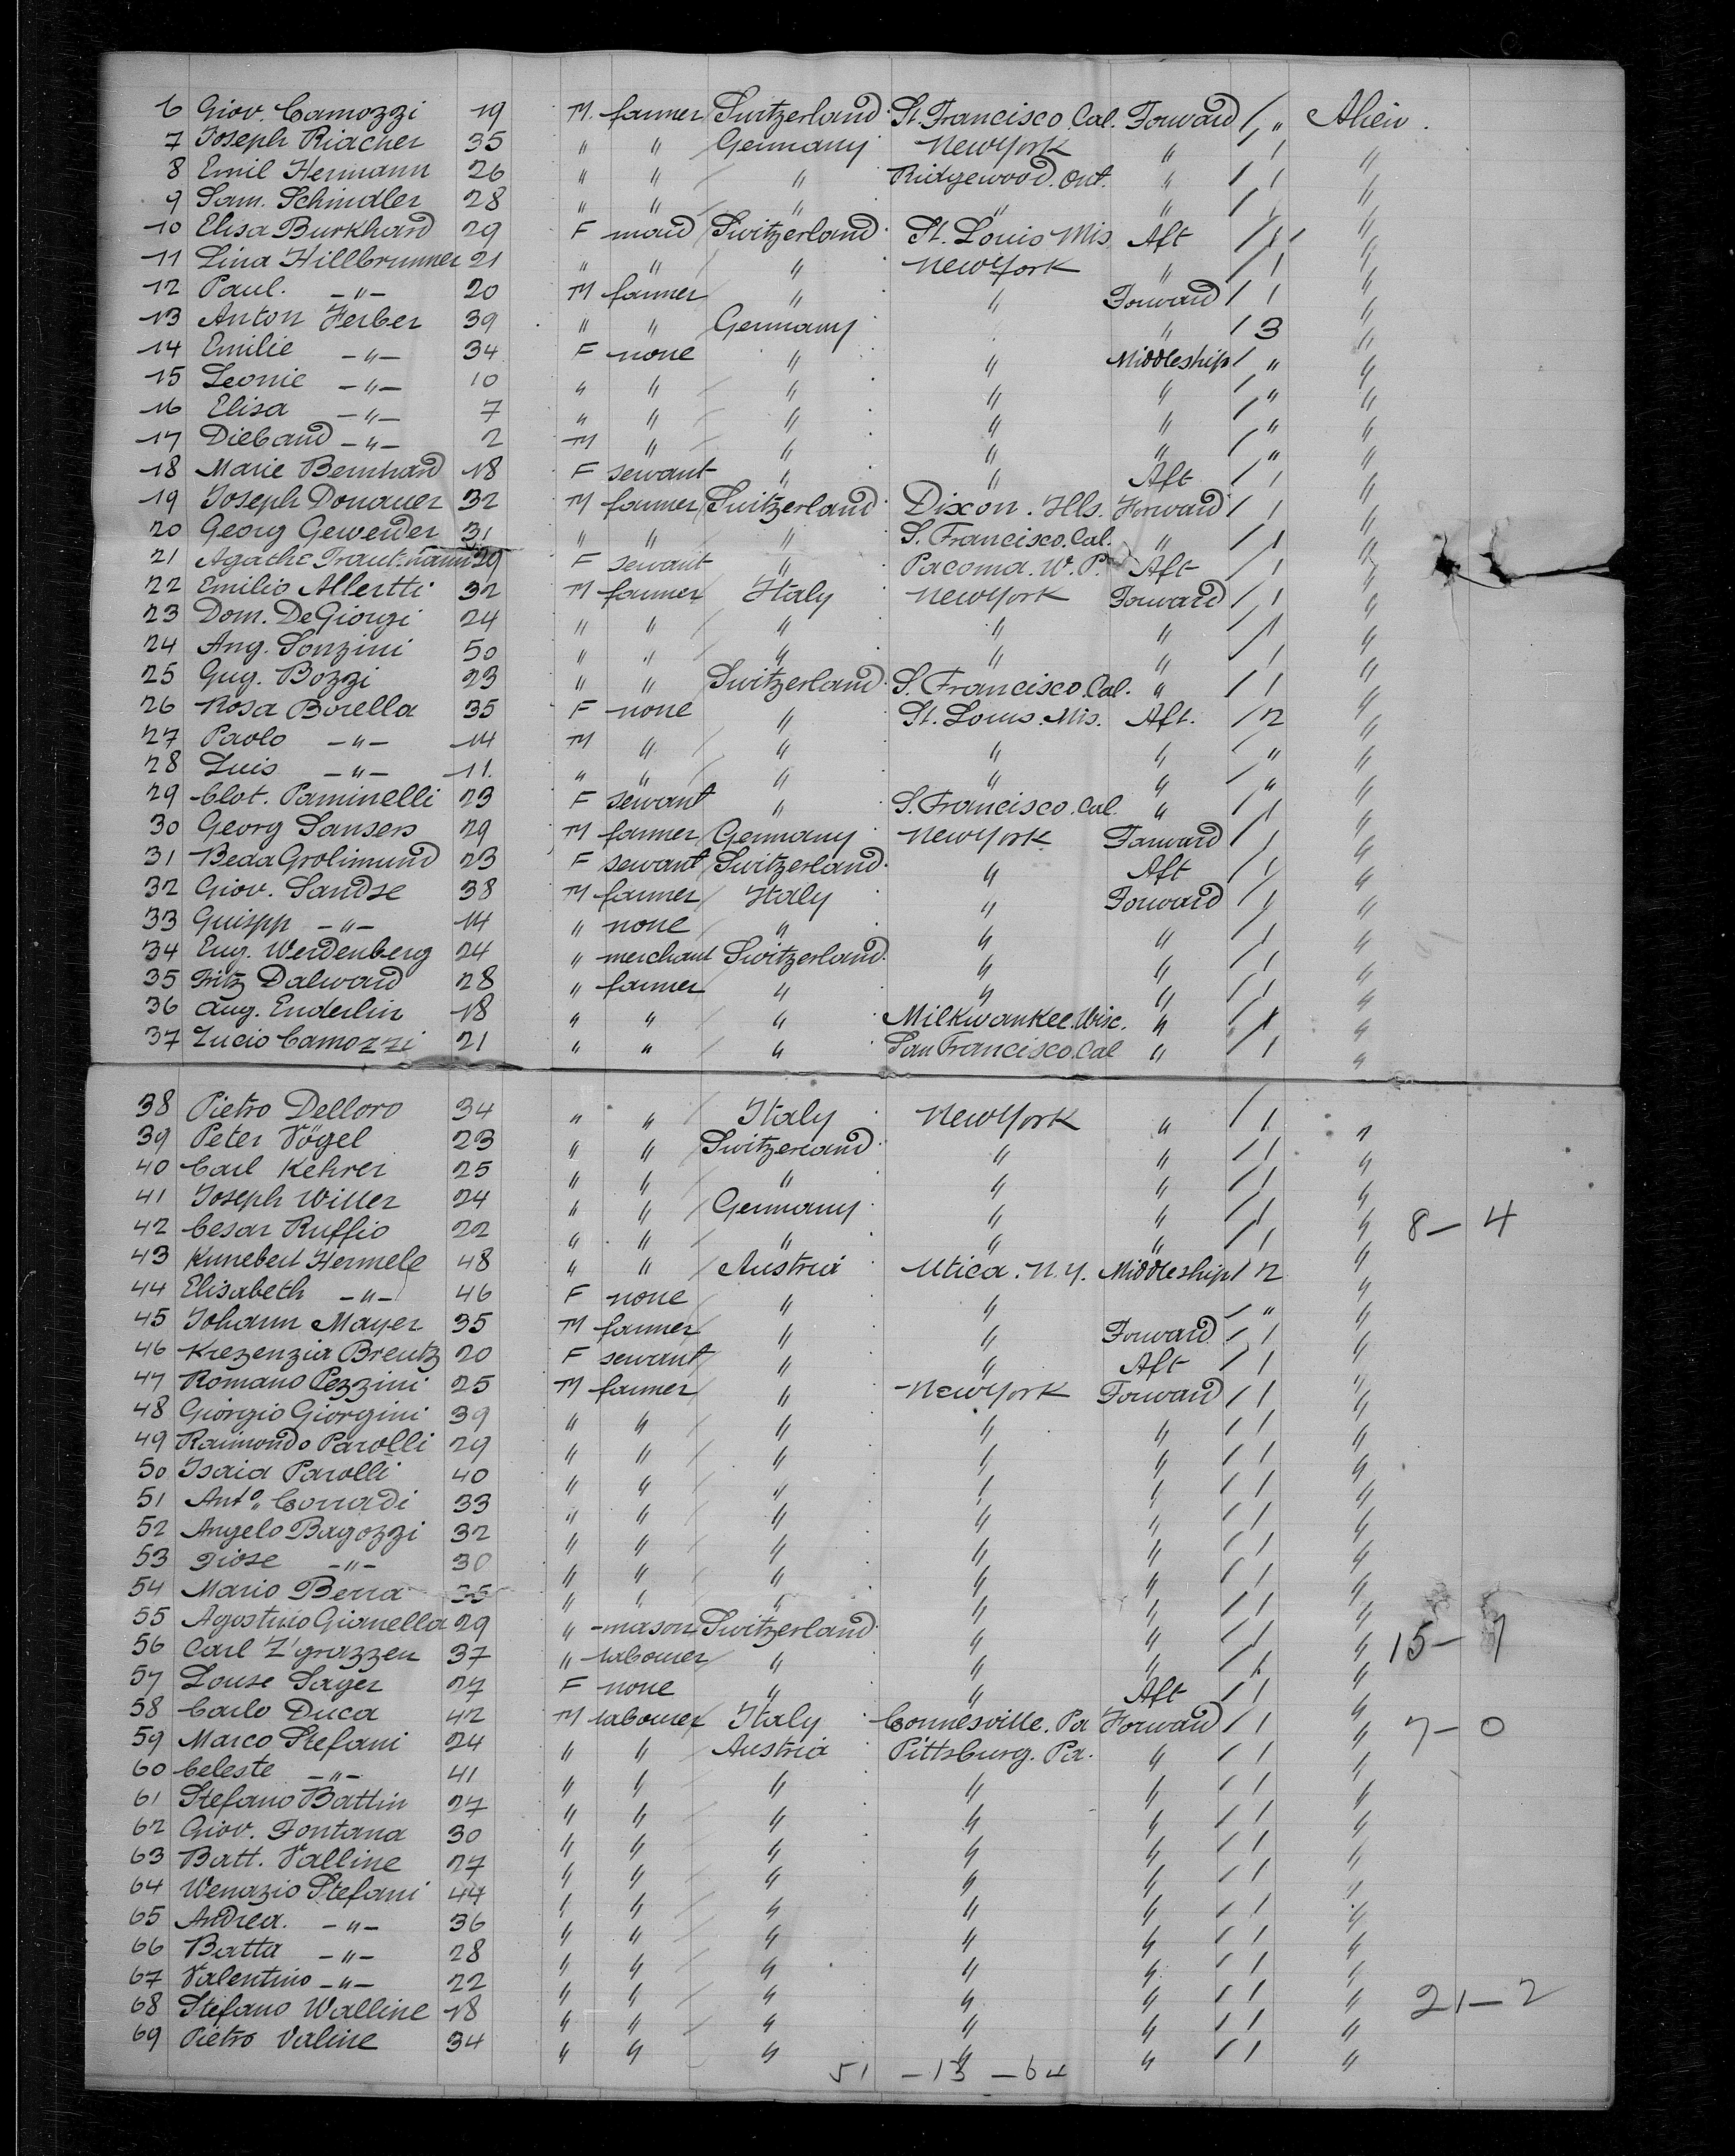 6 Giov. Camozzi 19 M. farmer Switzerland St. Francisco Cal. Forward / " Alien.
7 Joseph Riacher 35 " " Germany New York " / 1 "
8 Emil Hermann 26 " " " Ridgewood. Ont. " / 1 "
9 Sam. Schindler 28 " " " " " / 1 "
10 Elisa Burkhard 29 F maid Switzerland St. Louis Mis Aft / 1 "
11 Lina Hillbrunner 21 " " " New York " / 1 "
12 Paul. -"- 20 M farmer " " Forward / 1 "
13 Anton Ferber 39 " " Germany " / 3 "
14 Emilie -"- 34 F none " " Middleship / " "
15 Leonie -"- 10 " " " " " / " "
16 Elisa -"- 7 " " " " " / " "
17 Diebaud -"- 2 M " " " " / " "
18 Marie Bernhard 18 F servant " " Aft / 1 "
19 Joseph Donauer 32 M farmer Switzerland Dixon. Ills. Forward / 1 "
20 Georg Geweider 31 " " " S. Francisco. Cal. " / 1 "
21 Agathe Trautmann 29 F servant " Pacoma. W. P. Aft / 1 "
22 Emilio Allertti 32 M farmer Italy New York Forward / 1 "
23 Dom. DeGiorgi 24 " " " " " / 1 "
24 Ang. Sonzini 50 " " " " " / 1 "
25 Gug. Bozzi 23 " " Switzerland S. Francisco. Cal. " / 1 "
26 Rosa Borella 35 F none " St. Louis. Mis. Aft. / 2 "
27 Paolo -"- 14 M " " " " / " "
28 Luis -"- 11. " " " " " / " "
29 Clot. Paminelli 23 F servant " S. Francisco. Cal. " / 1 "
30 Georg Sansers 29 M farmer Germany New York Forward / 1 "
31 Beda Grolimund 23 F servant Switzerland " Aft / 1 "
32 Giov. Sandse 38 M farmer Italy " Forward / 1 "
33 Guispp -"- 14 " none " " " / 1 "
34 Eug. Werdenberg 24 " merchant Switzerland " " / 1 "
35 Fritz Dalward 28 " farmer " " " / 1 "
36 Aug. Enderlin 18 " " " Milkwankee. Wisc. " / 1 "
37 Lucio Camozzi 21 " " " San Francisco. Cal " / 1 "
38 Pietro Delloro 34 " " Italy New York " / 1 "
39 Peter Vögel 23 " " Switzerland " " / 1 "
40 Carl Kehrer 25 " " " " " / 1 "
41 Joseph Willer 24 " " Germany " " / 1 " 8 - 4
42 Cesar Ruffio 22 " " " " " / 1 "
43 Kunebert Hermele 48 " " Austria Utica. N. Y. Middleship / 2 "
44 Elisabeth -"- 46 F none " " / " "
45 Johann Mayer 35 M farmer " " Forward / 1 "
46 Krezenzia Breutz 20 F servant " " Aft / 1 "
47 Romano Pezzini 25 M farmer " New York Forward / 1 "
48 Giorgio Giorgini 39 " " " " " / 1 "
49 Raimondo Parolli 29 " " " " " / 1 "
50 Isaia Parolli 40 " " " " " / 1 "
51 Anto. Corradi 33 " " " " " / 1 "
52 Angelo Bagozzi 32 " " " " " / 1 "
53 Giose -"- 30 " " " " " / 1 "
54 Mario Berra 35 " " " " " / 1 "
55 Agostino Gianella 29 " mason Switzerland " " / 1 " 15 - 7
56 Carl Z'grazzen 37 " labourer " " " / 1 "
57 Louse Sager 27 F none " " Aft / 1 "
58 Carlo Duca 42 M labourer Italy Connesville. Pa Forward / 1 " 7 - 0
59 Marco Stefani 24 " " Austria Pittsburg. Pa. " / 1 "
60 Celeste -"- 41 " " " " " / 1 "
61 Stefano Battin 27 " " " " " / 1 "
62 Giov. Fontana 30 " " " " " / 1 "
63 Batt. Valline 27 " " " " " / 1 "
64 Wenazio Stefani 44 " " " " " / 1 "
65 Andrea. -"- 36 " " " " " / 1 "
66 Batta -"- 28 " " " " " / 1 "
67 Valentino -"- 22 " " " " " / 1 " 21 - 2
68 Stefano Walline 18 " " " " " / 1 "
69 Pietro Valine 34 " " " " " / 1 "
51 - 13 - 64